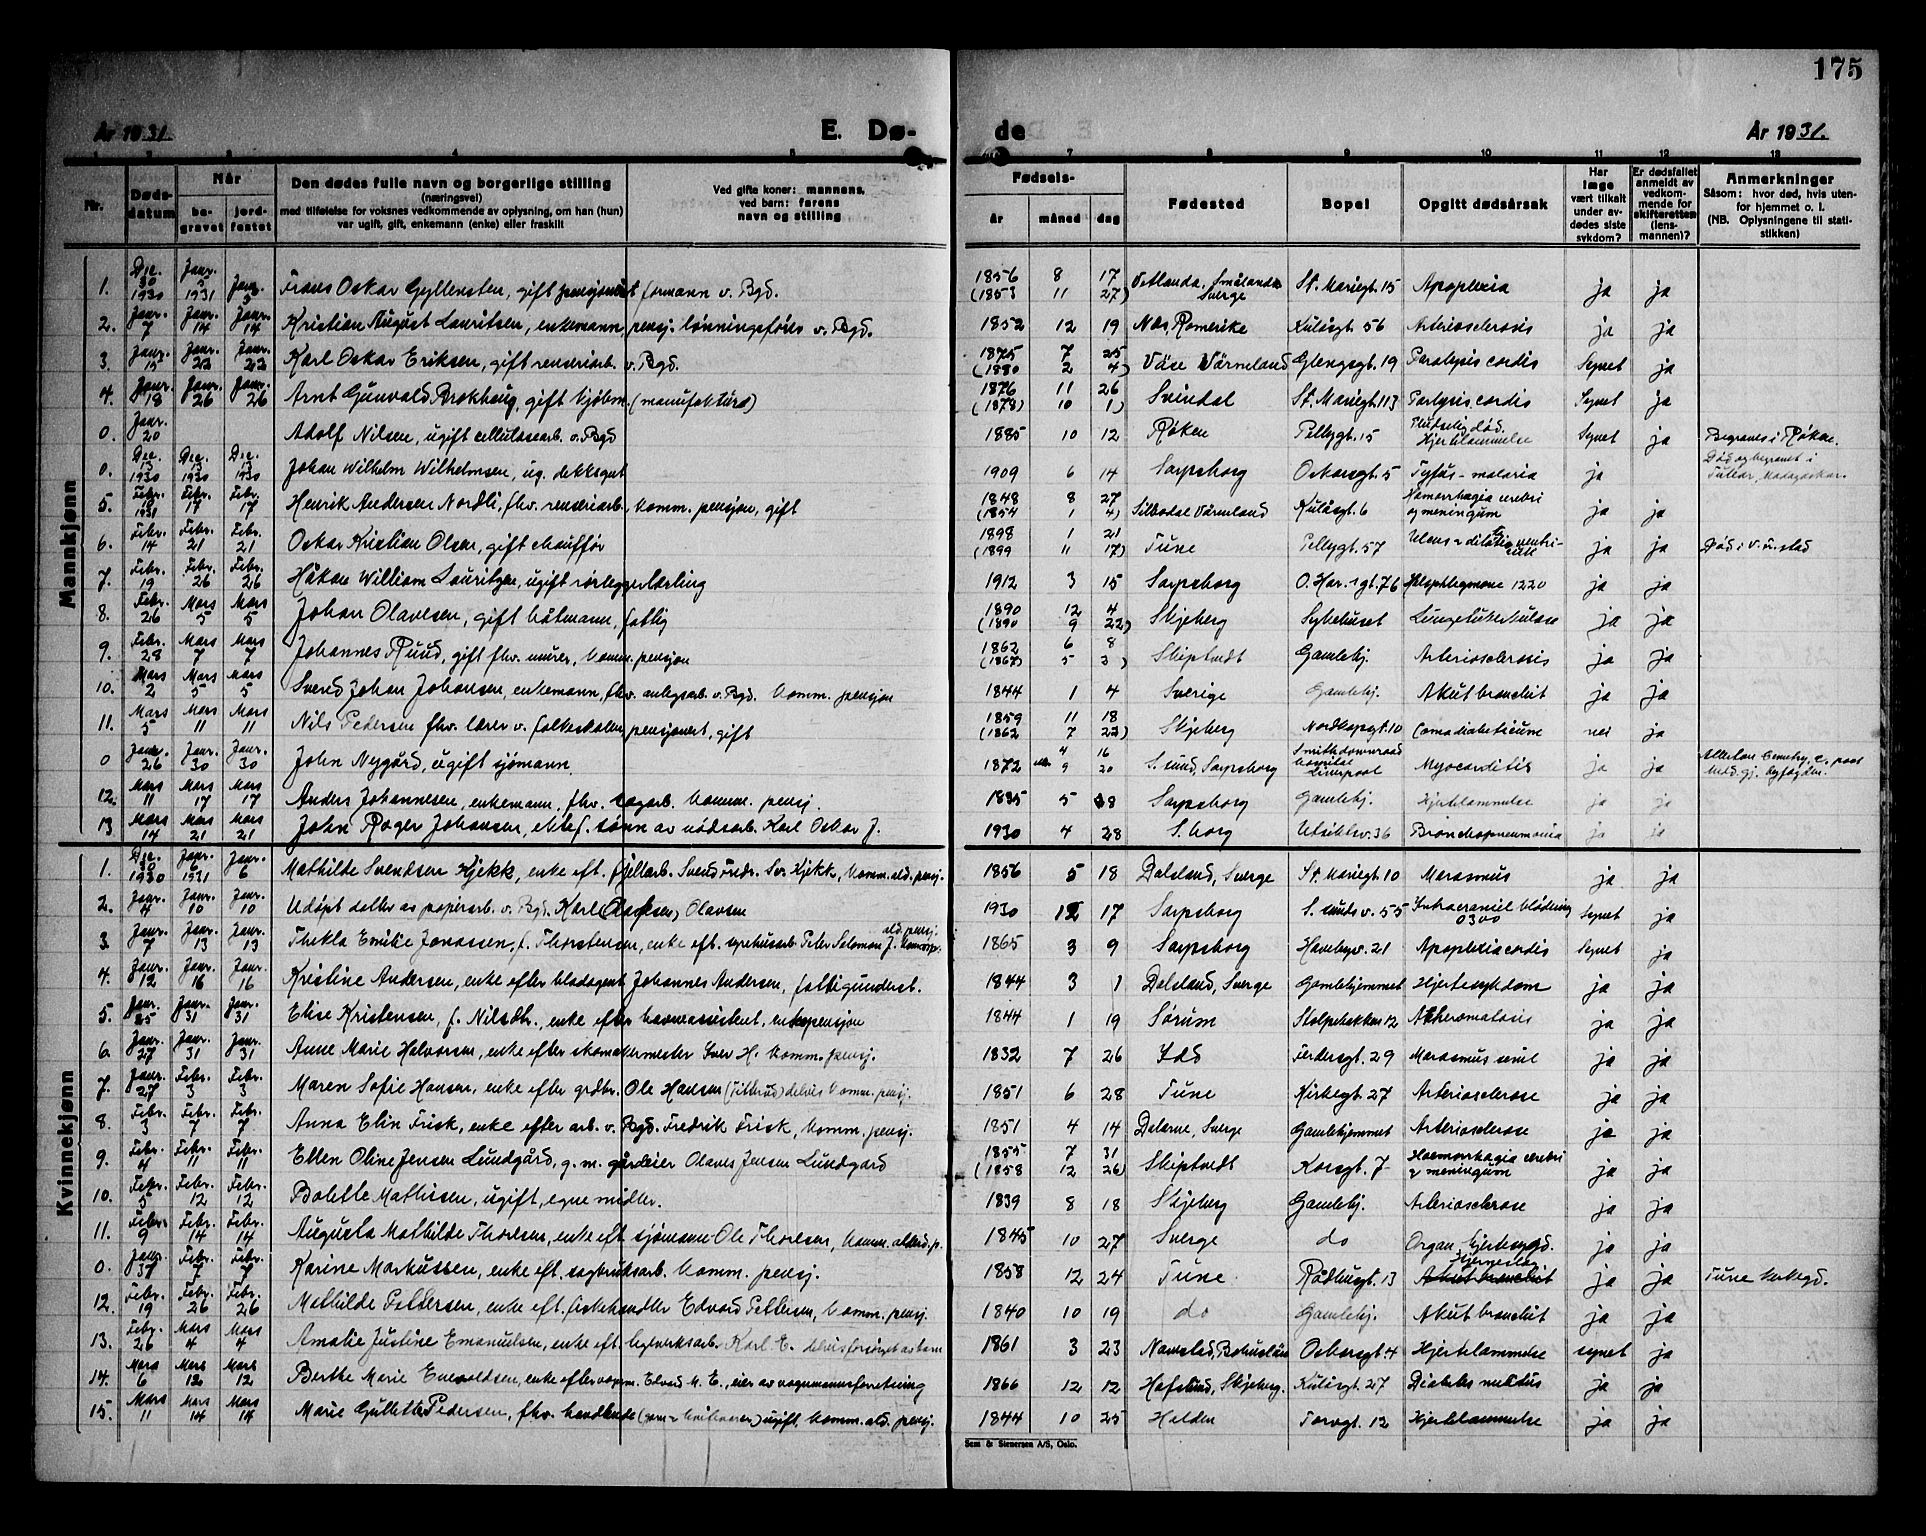 175
År 1931.
E. Dø-
de
År 1931.
Nr.
Døds-
datum
Når
be-
gravet
jord-
festet
Den dødes fulle navn og borgerlige stilling
(næringsvei)
med tilføielse for voksnes vedkommende av oplysning, om han (hun)
var ugift, gift, enkemann (enke) eller fraskilt
Ved gifte koner: mannens,
ved barn: farens
navn og stilling
Fødsels-
år
måned
dag
Fødested
Bopel
Opgitt dødsårsak
Har
læge
vært tilkalt
under av-
dødes siste
sykdom?
Er dødsfallet
anmeldt av
vedkom-
mende for
skifteretten
(lens-
mannen)?
Anmerkninger
Såsom: hvor død, hvis uten-
for hjemmet o. l.
(NB. Oplysningene til stati-
stikken)
Mannkjønn
1. Dec. 30 1930 Jaur. 5 1931 Jaur. 5 Frans Oskar Gyllensten, gift pensjonist formann v. Bgd. 1856 8 17 (1853 11 27) Vetlanda, Småland Sverge St. Mariegt. 15 Apoplexia ja ja
2. Jaur. 7 Jaur. 14 Jaur. 14 Kristian August Lauritsen, enkemann, pensj. lønningsfører v. Bgd. 1852 12 19 Nes, Romerike Kulåsgt. 56 Arteriosclerosis ja ja
3. Jaur. 15 Jaur. 22 Jaur. 22 Karl Oskar Eriksen, gift renseriarb. v. Bgd. 1875 7 25 (1880 2 4) Väse Värmeland Glengsgt. 19 Paralysis cordis Synet ja
4. Jaur. 18 Jaur. 26 Jaur. 26 Arnt Gunvald Brokhaug, gift kjøbm. (manufaktur) 1876 11 26 (1878) 10 1) Svindal St. Mariegt. 113 Parlysis cordis Synet ja
0. Jaur. 20 Adolf Nilsen, ugift cellulosearb. v. Bgd 1885 10 12 Røken Pellygt. 15 Plutselig død. Hjertelammelse Synet ja Begraves i Røken.
0. Dec. 13 1930 Dec. 13 1930 Dec. 13 1930 Johan Wilhelm Wilhelmsen, ug. dekksgut 1909 6 14 Sarpsborg Oskarsgt. 5 Tyfus-malaria ja Død og begravet i Tullear, Madagaskar.
5. Febr. 10 1931 Febr. 17 Febr. 17 Henrik Andersen Nordli, fhv. renseriarb., komm. pensjon, gift 1848 8 27 (1854 1 4) Silbodal Värmland Kulåsgt. 6 Hæmorrhagia cerebri og meningum ja ja
6. Febr. 14 Febr. 21 Febr. 21 Oskar Kristian Olsen, gift chauffør 1898 1 21 (1899 11 17) Tune Pellygt. 57 ja ja
7. Febr. 19 Febr. 26 Febr. 26 Håkon William Lauritzen, ugift rørleggerlærling 1912 3 15 Sarpsborg O. Har. sgt. 76 Halsphlegmone 1220 ja ja
8. Febr. 26 Mars 5 Mars 5 Johan Olavesen, gift båtmann, fattig 1890 12 4 (1890 9 22) Skjeberg Sykehuset Lungetuberkulose ja ja
9. Febr. 28 Mars 7 Mars 7 Johannes Ruud, gift fhv. murer, komm. pensjon 1862 6 8 (1867) 5 3) Skiptvedt Gamlehj. Arteriosclerosis ja ja
10. Mars 2 Mars 5 Mars 5 Svend Johan Johansen, enkemann, fhv. anlegsarb. v. Bgd. komm. pensjon 1844 1 4 Sverige Gamlehj. Akut bronchit ja ja
11. Mars 5 Mars 11 Mars 11 Nils Pedersen fhv. lærer v. folkeskolen, pensjonert, gift 1859 11 18 (1862 7 22) Skjeberg Nordkapgt. 10 Coma diabeticum nei ja
0 Jaur. 26 Jaur. 30 Jaur. 30 John Nygård, ugift sjømann. 1872 4 16 9 20 S. sund, Sarpsborg Smithdownroad hospital Liverpool Myocarditis ja ja
12. Mars 11 Mars 17 Mars 17 Anders Johannesen, enkemann, fhv. sagarb. komm. pensj. 1835 5 8 Sarpsborg Gamlehj. Hjertelammelse ja ja
13 Mars 14 Mars 21 Mars 21 John Roger Johansen, ektef. sønn av nødsarb. Karl Oskar J. 1930 4 28 S. borg Utsiktsv. 36 Bronchopneumonia ja ja
Kvinnekjønn
1. Dec. 30 1930 Jaur. 6 1931 Jaur. 6 Mathilde Svendsen Kjekk, enke eft. fjellarb. Svend Kjekk, komm. ald. pensj. 1856 5 18 Dalsland, Sverge St. Mariegt. 10 Marasmus ja ja
2. Jaur. 4 Jaur. 10 Jaur. 10 Udøpt datter av papirarb. v. Bgd. Karl Olavsen 1930 12 17 Sarpsborg S. sunds v. 55 Intracraniel blødning 0300 Synet ja
3. Jaur. 7 Jaur. 13 Jaur. 13 Thekla Emilie Jonassen, f. Thorstensen, enke eft. Peter Salomon J. komm. ald. pensj. 1865 3 9 Sarpsborg Havebyv. 21 Apoplexia cordis Synet ja
4. Jaur. 12 Jaur. 16 Jaur. 16 Kristine Andersen, enke efter bladagent Johannes Andersen, fattigunderst. 1844 3 1 Dalsland, Sverge Gamlehjemmet Hjertesykdom ja ja
5. Jaur. 25 Jaur. 31 Jaur. 31 Elise Kristensen, f. Nilsdtr., enke efter havneassistent, enkepensjon 1844 1 19 Sørum Stolpebakken 12 Atheromatosis ja ja
6. Jaur. 27 Jaur. 31 Jaur. 31 Anne Marie Halvorsen, enke efter skomakermester Iver H. komm. pensj. 1832 7 26 Idd Ferdersgt. 29 Marasmus senil ja ja
7. Jaur. 27 Febr. 3 Febr. 3 Maren Sofie Hansen, enke efter grdbr. Ole Hansen delvis komm. pensj. 1851 6 28 Tune Kirkegt. 27 Arteriosclerose ja ja
8. Febr. 3 Febr. 7 Febr. 7 Anna Elin Frisk, enke efter arb. v. Bgd. Fredrik Frisk, komm. pensj. 1851 4 14 Dalarne, Sverge Gamlehjemmet Arteriosclerose ja ja
9. Febr. 4 Febr. 11 Febr. 11 Ellen Oline Jensen Lundgård, g. m. gårdeier Olaves Jensen Lundgård 1855 7 31 (1858 12 26) Skiptvedt Korsgt. 7 Hæmorrhagia cerebri & meningum ja ja
10. Febr. 5 Febr. 12 Febr. 12 Bolette Mathisen, ugift, egne midler. 1839 8 18 Skjeberg Gamlehj. Arteriosclerose ja ja
11. Febr. 9 Febr. 14 Febr. 14 Augusta Mathilde Thoresen, enke eft. sjømann Ole Thoresen, komm. alderd. p. 1845 10 27 Sverge do Organ. hjertesygd. ja ja
0. Jaur. 31 Febr. 7 Febr. 7 Karine Markussen, enke eft. sagbruksarb. komm. pensj. 1858 12 24 Tune Rådhusgt. 13 Hjerneslag Akut bronchit ja ja Tune kirkegd.
12. Febr. 19 Febr. 26 Febr. 26 Mathilde Pettersen, enke eft. fiskehandler Edvard Pettersen, komm. pensj. 1840 10 19 do Gamlehj. Akut bronchit ja ja
13. Febr. 26 Mars 4 Mars 4 Amalie Justine Emanuelsen, enke eft. Karl E. delvis forsørget av barn 1861 3 23 Navestad, Bohuslän Oskarsgt 4 Hjertelammelse synet ja
14. Mars 6 Mars 12 Mars 12 Berthe Marie Envoldsen, enke efter vognm. Edvard M. E., eier av vognmannsforretning 1866 12 12 Hafslund, Skjeberg. Kulåsgt. 27 Diabetes mellitus ja ja
15. Mars 11 Mars 14 Mars 14 Marie Gullette Pedersen, fhv. handlende ugift komm. ald. pensj. 1844 10 25 Halden Torvgt. 12 Hjertelammelse ja ja
Sem & Stenersen A/S, Oslo.